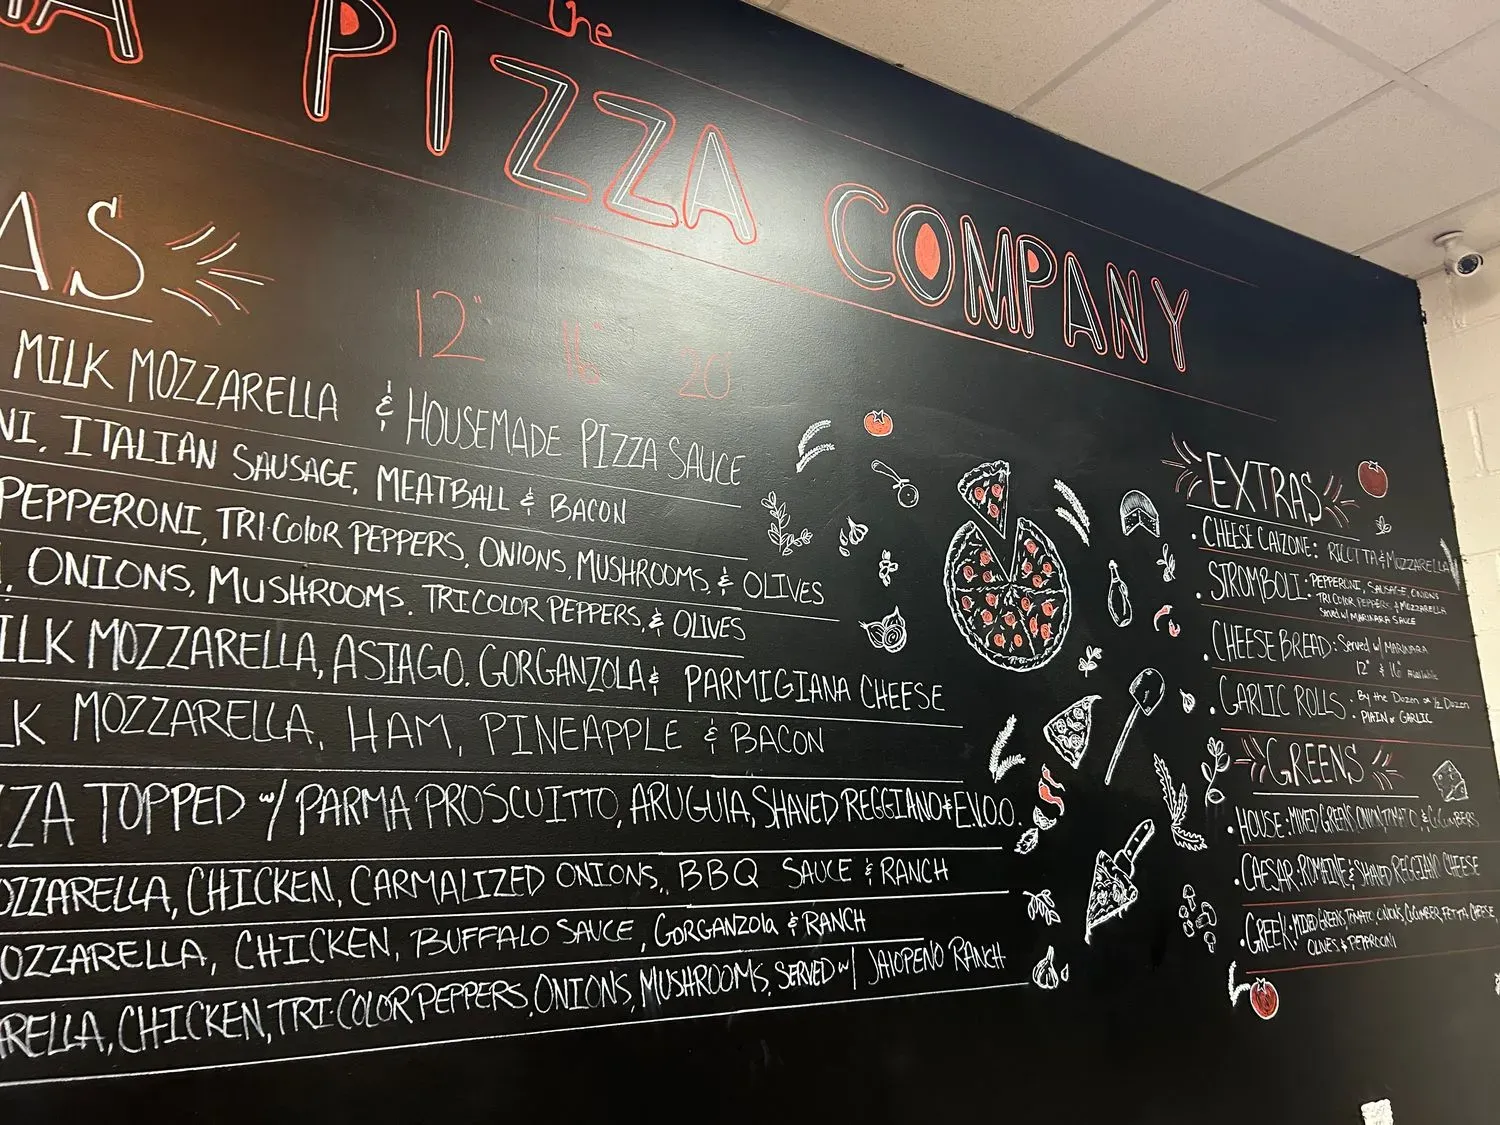 the
A PIZZA COMPANY
AS
12" 16" 20
MILK MOZZARELLA & HOUSEMADE PIZZA SAUCE
NI, ITALIAN SAUSAGE, MEATBALL & BACON
PEPPERONI, TRI·COLOR PEPPERS, ONIONS, MUSHROOMS, & OLIVES
, ONIONS, MUSHROOMS, TRICOLOR PEPPERS, & OLIVES
ILK MOZZARELLA, ASIAGO, GORGANZOLA & PARMIGIANA CHEESE
LK MOZZARELLA, HAM, PINEAPPLE & BACON
ZZA TOPPED w/ PARMA PROSCUITTO, ARUGULA, SHAVED REGGIANO & E.V.O.O.
OZZARELLA, CHICKEN, CARMALIZED ONIONS, BBQ SAUCE & RANCH
OZZARELLA, CHICKEN, BUFFALO SAUCE, GORGANZOLA & RANCH
RELLA, CHICKEN, TRI·COLOR PEPPERS, ONIONS, MUSHROOMS, SERVED w/ JALOPENO RANCH
EXTRAS
· CHEESE CALZONE: RICOTTA & MOZZARELLA
· STROMBOLI: PEPPERONI, SAUSAGE, ONIONS
TRI COLOR PEPPERS, & MOZZARELLA
Served w/ MARINARA SAUCE
· CHEESE BREAD: Served w/ MARINARA
12" & 16" Available
· GARLIC ROLLS · By the Dozen or 1/2 Dozen
· PLAIN or GARLIC
GREENS
· HOUSE: MIXED GREENS, ONION, TOMATO, & CUCUMBERS
· CAESAR: ROMAINE & SHAVED REGGIANO CHEESE
· GREEK: MIXED GREENS, TOMATO, ONIONS, CUCUMBER, FETTA CHEESE,
OLIVES, & PEPPRONCINI